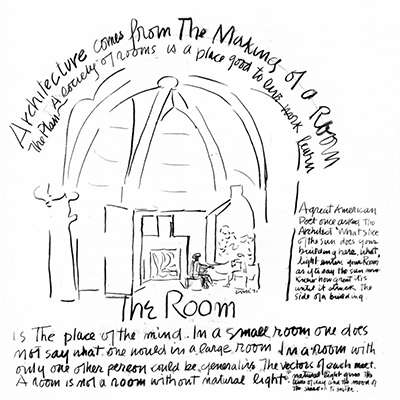 Architecture comes from The Making of a Room
The Plan A society of rooms is a place good to live work learn
A great American
Poet once asked the
Architect "What slice
of the sun does your
building have, what
light enters your Room
as if to say the sun never
knew how great it is
until it struck the
side of a building.
The Room
is The place of the mind. In a small room one does
not say what one would in a large room In a room with
only one other person could be generative The vectors of each meet.
A room is not a room without natural light
natural light gives the
time of day and the mood of
the seasons to enter.